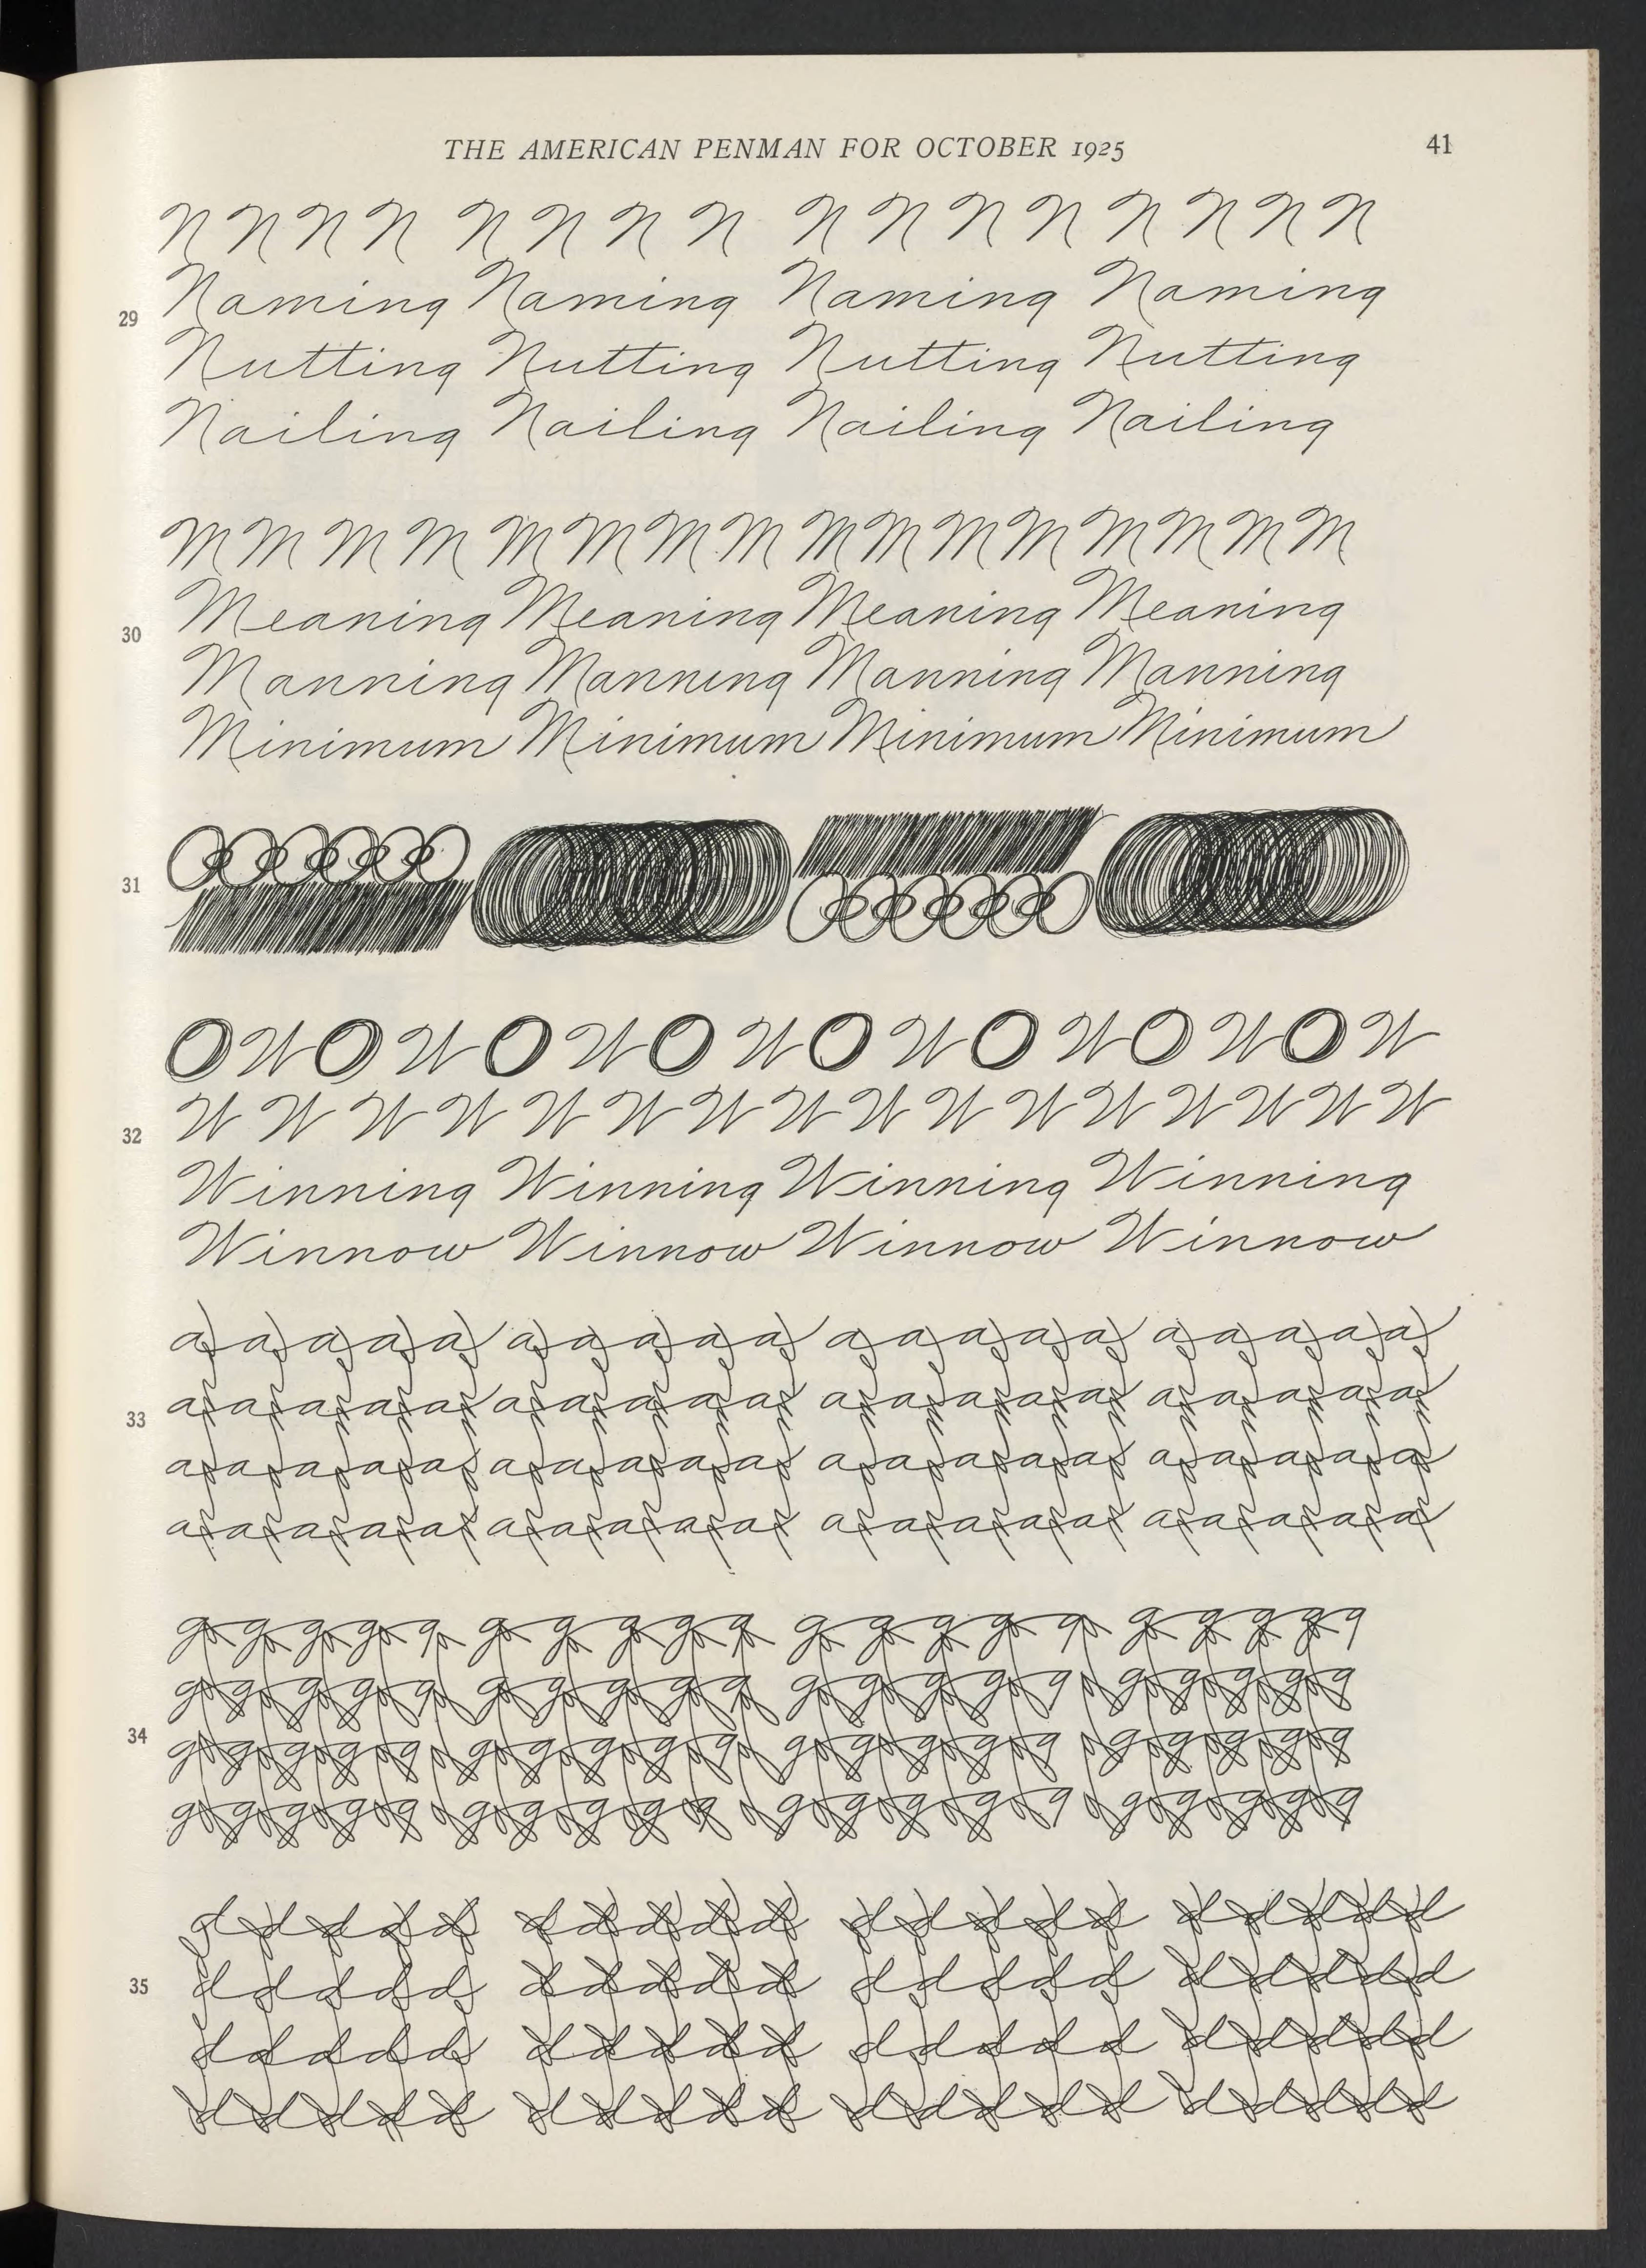 THE AMERICAN PENMAN FOR OCTOBER 1925 41
N N N N N N N N N N N N N N N N
29 Naming Naming Naming Naming
Nutting Nutting Nutting Nutting
Nailing Nailing Nailing Nailing
M M M M M M M M M M M M M M M M
30 Meaning Meaning Meaning Meaning
Manning Manning Manning Manning
Minimum Minimum Minimum Minimum
31
O W O W O W O W O W O W O W O W
32 W W W W W W W W W W W W W W W W
Winning Winning Winning Winning
Winnow Winnow Winnow Winnow
a a a a a a a a a a a a a a a a a a a a
33 a a a a a a a a a a a a a a a a a a a a
a a a a a a a a a a a a a a a a a a a a
a a a a a a a a a a a a a a a a a a a a
g g g g g g g g g g g g g g g g g g g g
g g g g g g g g g g g g g g g g g g g g
34 g g g g g g g g g g g g g g g g g g g g
g g g g g g g g g g g g g g g g g g g g
d d d d d d d d d d d d d d d d d d d d
35 d d d d d d d d d d d d d d d d d d d d
d d d d d d d d d d d d d d d d d d d d
d d d d d d d d d d d d d d d d d d d d